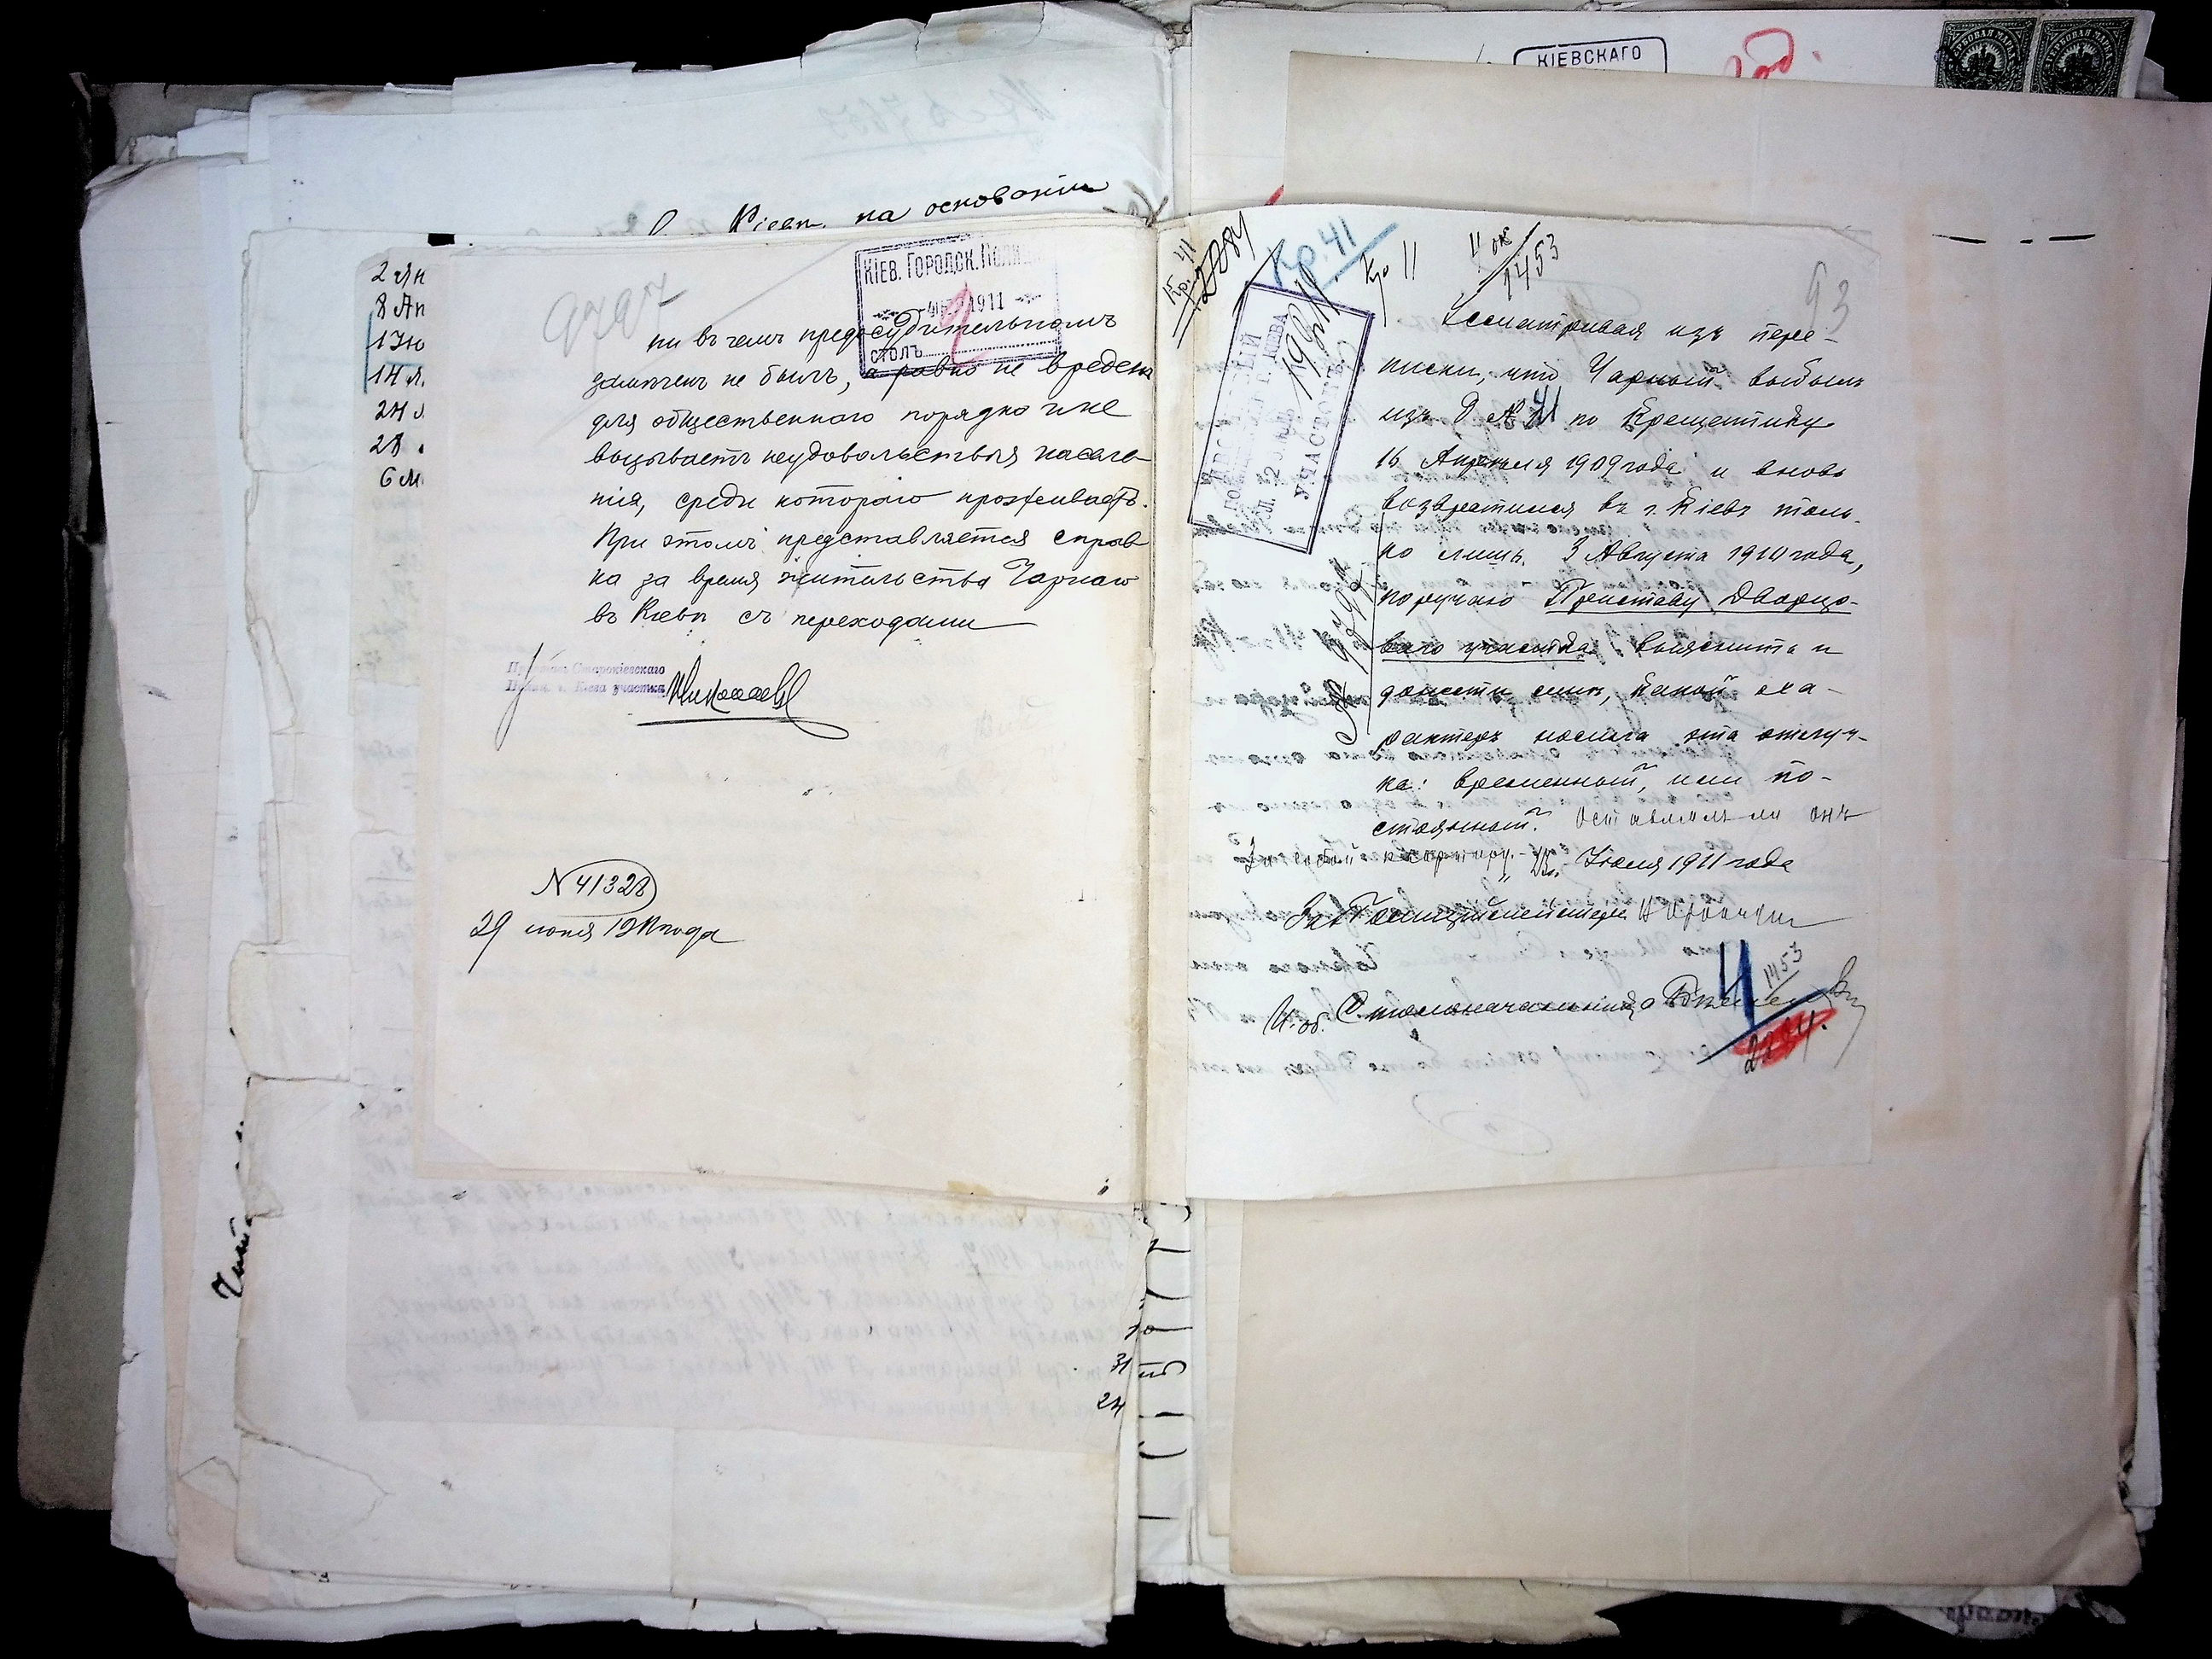 КІЕВСКАГО
на основаніи
2 Ян
8 Ап
1 Ію
14 л.
24
28
6 М
9797
КІЕВ. ГОРОДСК. ПОЛИЦ
1911
СТОЛЪ
2
ни въ чемъ предосудительномъ
замѣченъ не былъ, а равно не вреденъ
для общественнаго порядка и не
вызываетъ неудовольствія населе-
нія, среди котораго проживаетъ.
При этомъ представляется справ
ка за время жительства Чарнаго
въ Кіевѣ съ переходами
Приставъ Старокіевскаго
Полиц. г. Кіева участка
N 41328
29 іюня 1911 года
31
24
Кр. 41
Кр. 41
Кр 11
1453
93
УЧАСТОКЪ
Усматривая изъ пере-
писки, что Чарный выбылъ
изъ д № 41 по Крещатику
16 Апрѣля 1909 года и вновь
возвратился въ г. Кіевъ толь-
ко лишь 3 Августа 1910 года,
поручаю Приставу Дворцо-
ваго участка выяснить и
донести мнѣ, какой ха-
рактеръ носила эта отлуч-
ка: временный, или по-
стоянный. Оставлялъ ли онъ
за собой квартиру. Іюля 1911 года
За Полиціймейстера
И. об. Столоначальника
1453